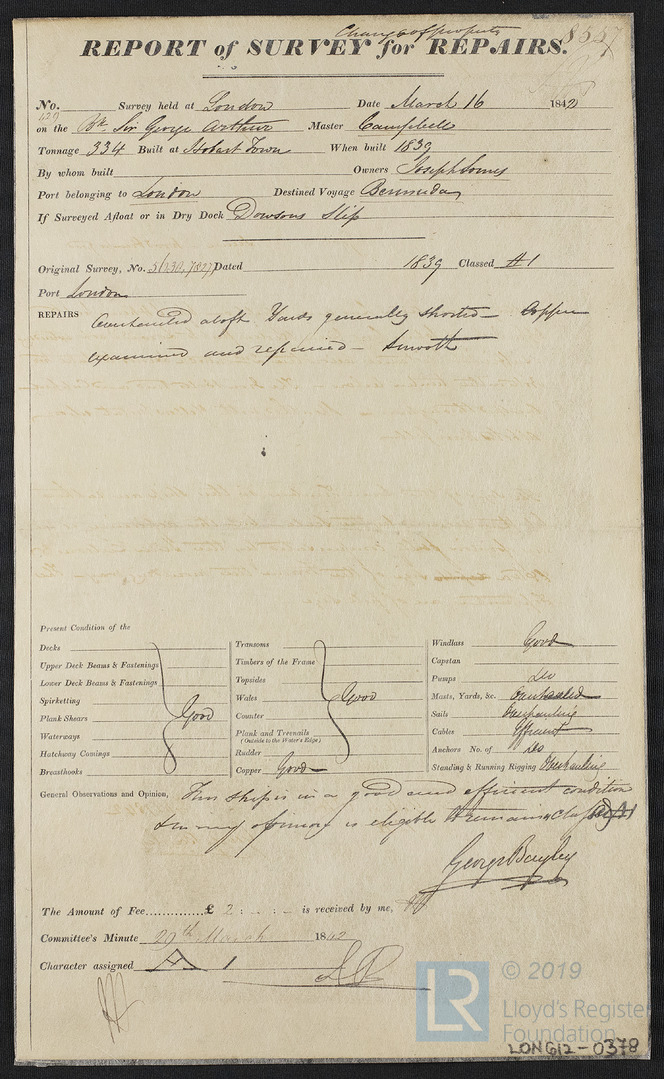 Change of property
8557
REPORT of SURVEY for REPAIRS.
No. 429 Survey held at London Date March 16 1842
on the Bk. Sir George Arthur Master Campbell
Tonnage 334 Built at Hobart Town When built 1839
By whom built Owners Joseph Somes
Port belonging to London Destined Voyage Bermuda
If Surveyed Afloat or in Dry Dock Dowsons Slip
Original Survey, No. Dated 1839 Classed A1
Port London
REPAIRS Overhauled aloft Yards generally shorted — Copper
examined and repaired — Smooth
Present Condition of the
Decks
Upper Deck Beams & Fastenings
Lower Deck Beams & Fastenings
Spirketting
Plank Shears Good
Waterways
Hatchway Comings
Breasthooks
Transoms
Timbers of the Frame
Topsides
Wales Good
Counter
Plank and Treenails
(Outside to the Water's Edge)
Rudder
Copper Good
Windlass Good
Capstan
Pumps Do
Masts, Yards, &c. Overhauled
Sails Overhauling
Cables Efficient
Anchors No. of Do
Standing & Running Rigging Overhauling
General Observations and Opinion, This ship is in a good and efficient condition
& in my opinion is eligible to remain as class A1
George Bayley
The Amount of Fee............£ 2 : - : - is received by me,
Committee's Minute 29th March 1842
Character assigned A 1
LR
© 2019
Lloyd's Register
Foundation
LON612-0378